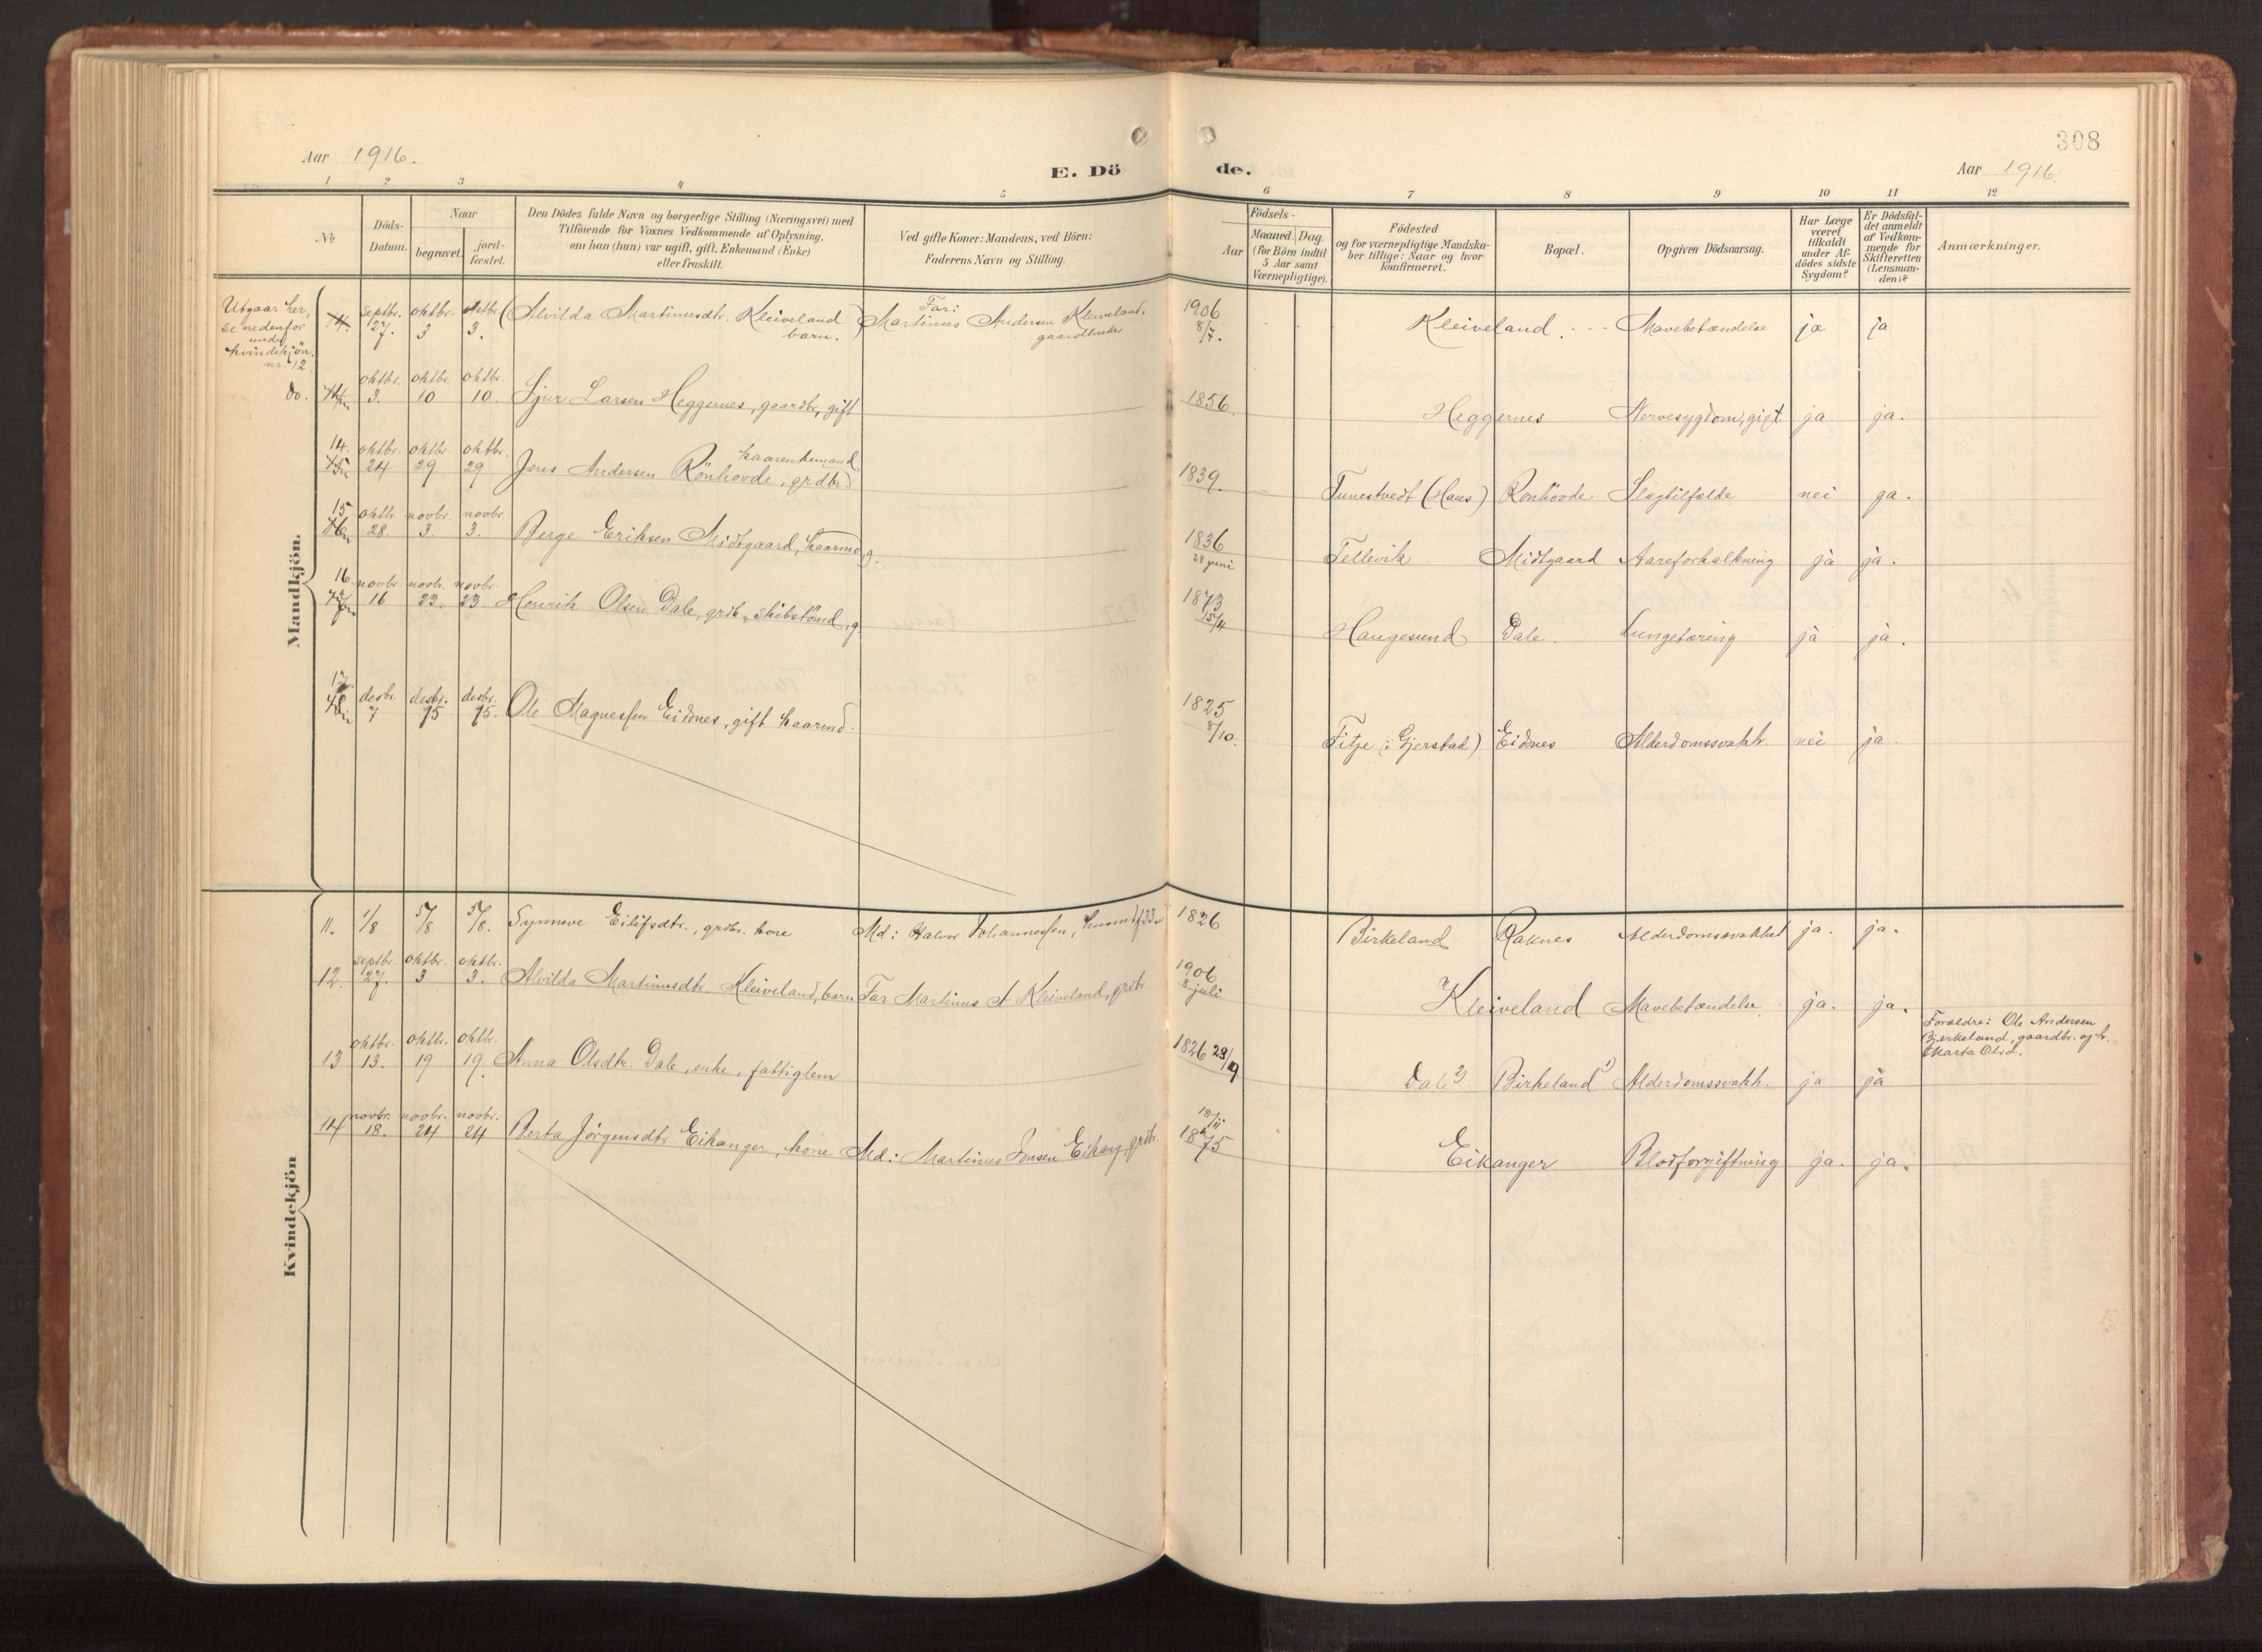 308
Aar 1916.
E. Dö de.
Aar 1916.
1 2 3 4 5 6 7 8 9 10 11 12
No
Döds-
Datum.
Naar
begravet.
jord-
fæstet.
Den Dödes fulde Navn og borgerlige Stilling (Næringsvei) med
Tilföiende for Voxnes Vedkommende af Oplysning,
om han (hun) var ugift, gift, Enkemand (Enke)
eller fraskilt.
Ved gifte Koner: Mandens, ved Börn:
Faderens Navn og Stilling.
Födsels-
Aar
Maaned. Dag.
(for Börn indtil
5 Aar samt
Værnepligtige).
Födested
og for værnepligtige Mandska-
ber tillige: Naar og hvor
konfirmeret.
Bopæl.
Opgiven Dödsaarsag.
Har Læge
været
tilkaldt
under Af-
dödes sidste
Sygdom?
Er Dödsfal-
det anmeldt
af Vedkom-
mende for
Skifteretten
(Lensman-
den)?
Anmærkninger.
Mandkjön.
Utgaar her,
se nedenfor
under
kvindekjön.
nr. 12.
14. septbr. 27. oktbr. 3 oktbr. 3. (Alvilda Martinusdtr. Kleiveland barn.) Far: Martinus Andersen Kleiveland, gaardbruker 1906 8/7. Kleiveland. Mavebetændelse ja ja
do. oktbr. 3. oktbr. 10 oktbr. 10. Sjur Larsen Heggernes, gaardbr, gift 1856. Heggernes Nervesygdom, gigt ja ja.
14. oktbr. 24 oktbr. 29 oktbr. 29 Jens Andersen Rönhovde, grdbr kaarenkemand 1839. Tunestvedt (Haus) Rönhovde Slagtilfælde nei ja.
15 oktb. 28. novbr. 3. novbr. 3. Berge Eriksen Midtgaard, kaarmd, g. 1836 28 juni Tellevik Midtgaard Aareforkalkning ja ja.
16 novbr. 16 novbr. 23. novbr. 23 Henrik Olsen Dale, grdb, skibstömd, g. 1873 15/4 Haugesund Dale. Lungetæring ja ja.
17. desbr. 7 desbr. 15 desbr. 15. Ole Magnessen Eidsnes, gift kaarmd. 1825 8/10. Fitje (i Gjerstad) Eidsnes Alderdomssvakh. nei ja.
Kvindekjön
11. 1/8 5/8 5/8. Synneve Eilifsdtr., grdbr. kone Md: Halvor Johannessen, 1826 Birkeland Raknes Alderdomssvakhet ja. ja.
12. septbr. 27. oktbr. 3 oktbr. 3. Alvilda Martinusdtr. Kleiveland, barn Far Martinus A Kleiveland, grdbr. 1906 8 juli Kleiveland Mavebetændelse. ja. ja.
13 oktbr. 13. oktbr. 19 oktbr. 19. Anna Olsdtr. Dale, enke, fattiglem 1826 29/9 Dale 2) Birkeland 1) Alderdomssvakh. ja ja
Forældre: Ole Andersen
Bjerkeland, gaardbr. og h.
Marta Olsd.
14 novbr. 18. novbr. 24 novbr. 24 Berta Jörgensdtr. Eikanger, kone Md: Martinus Jonsen Eikang, grdbr. 18/11 1875 Eikanger Blodforgiftning ja. ja.